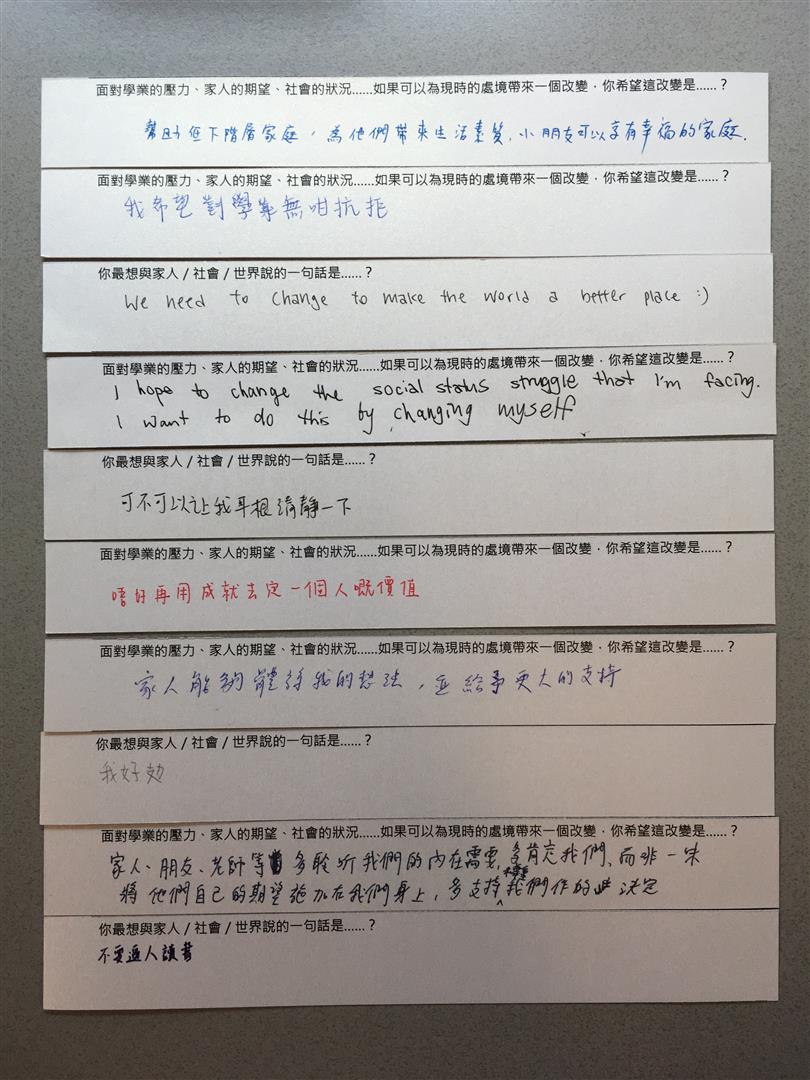 面對學業的壓力、家人的期望、社會的狀況......如果可以為現時的處境帶來一個改變，你希望這改變是......？
幫助低下階層家庭，為他們帶來生活素質，小朋友可以享有幸福的家庭.
面對學業的壓力、家人的期望、社會的狀況......如果可以為現時的處境帶來一個改變，你希望這改變是......？
我希望對學業無咁抗拒
你最想與家人 / 社會 / 世界說的一句話是......？
We need to change to make the world a better place :)
面對學業的壓力、家人的期望、社會的狀況......如果可以為現時的處境帶來一個改變，你希望這改變是......？
I hope to change the social status struggle that I'm facing.
I want to do this by changing myself
你最想與家人 / 社會 / 世界說的一句話是......？
可不可以让我耳根清靜一下
面對學業的壓力、家人的期望、社會的狀況......如果可以為現時的處境帶來一個改變，你希望這改變是......？
唔好再用成就去定一個人嘅價值
面對學業的壓力、家人的期望、社會的狀況......如果可以為現時的處境帶來一個改變，你希望這改變是......？
家人能夠體諒我的想法，並給予更大的支持
你最想與家人 / 社會 / 世界說的一句話是......？
我好攰
面對學業的壓力、家人的期望、社會的狀況......如果可以為現時的處境帶來一個改變，你希望這改變是......？
家人、朋友、老師等多聆听我們的內在需要，多肯定我們、而非一味
將他們自己的期望強加在我們身上，多支持我們作的決定
你最想與家人 / 社會 / 世界說的一句話是......？
不要逼人讀書